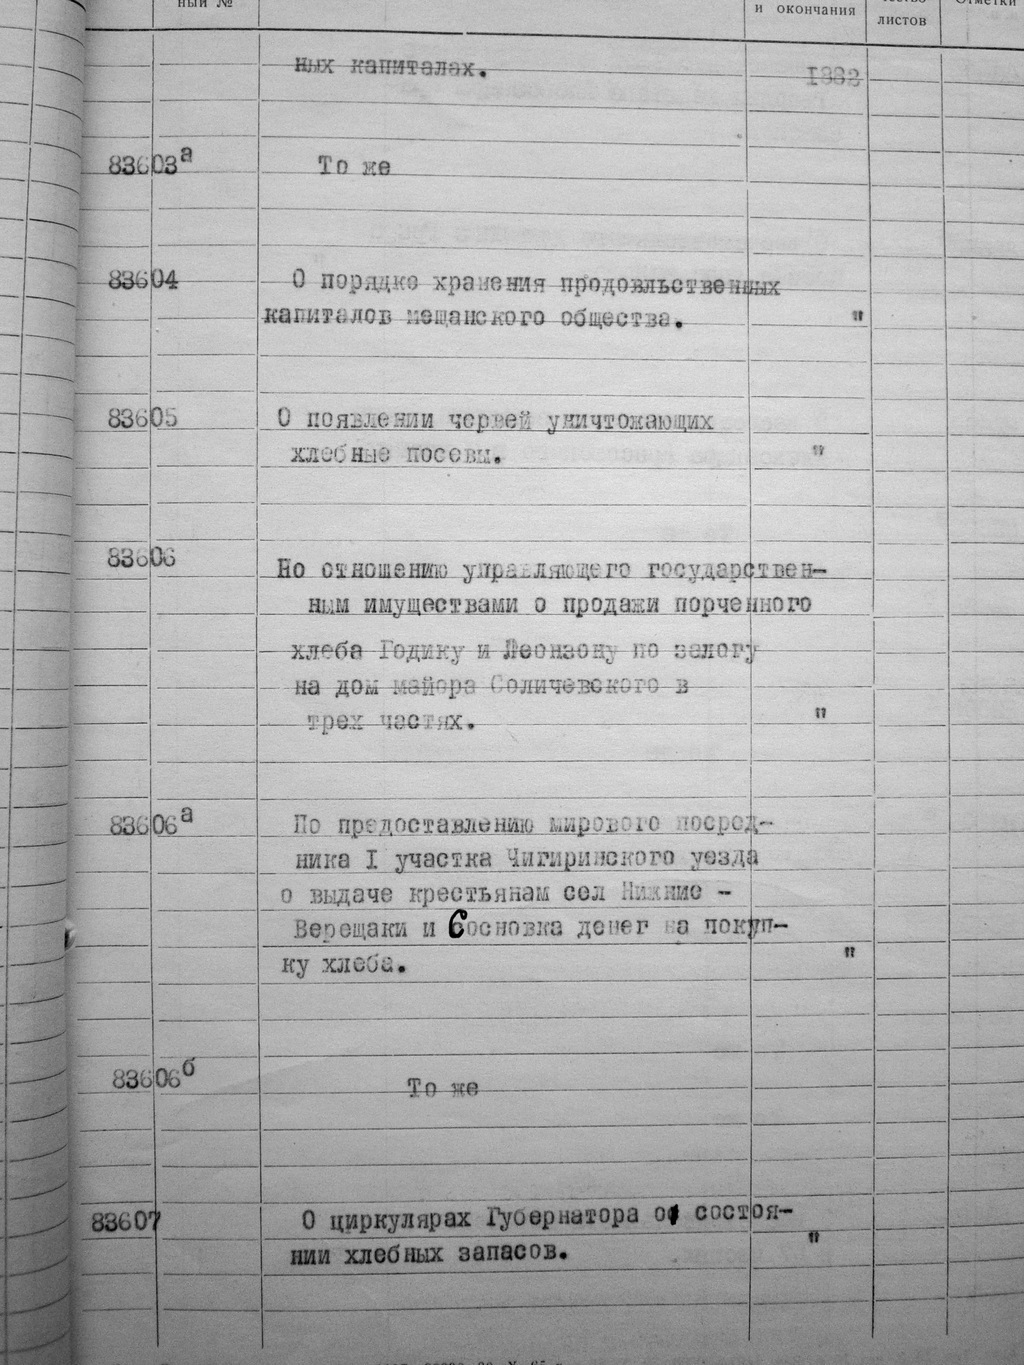 ный №
и окончания
листов
Отметки
ных капиталах. 1882
83603а То же
83604 О порядке хранения продовльственных
капиталов мещанского общества. "
83605 О появлении червей уничтожающих
хлебные посевы. "
83606 По отношению управляющего государствен-
ным имуществами о продажи порченного
хлеба Годику и Леонзону по залогу
на дом майора Соличевского в
трех частях. "
83606а По предоставлению мирового посред-
ника I участка Чигиринского уезда
о выдаче крестьянам сел Нижние -
Верещаки и Сосновка денег на покуп-
ку хлеба. "
83606б То же
83607 О циркулярах Губернатора о состоя-
нии хлебных запасов. "